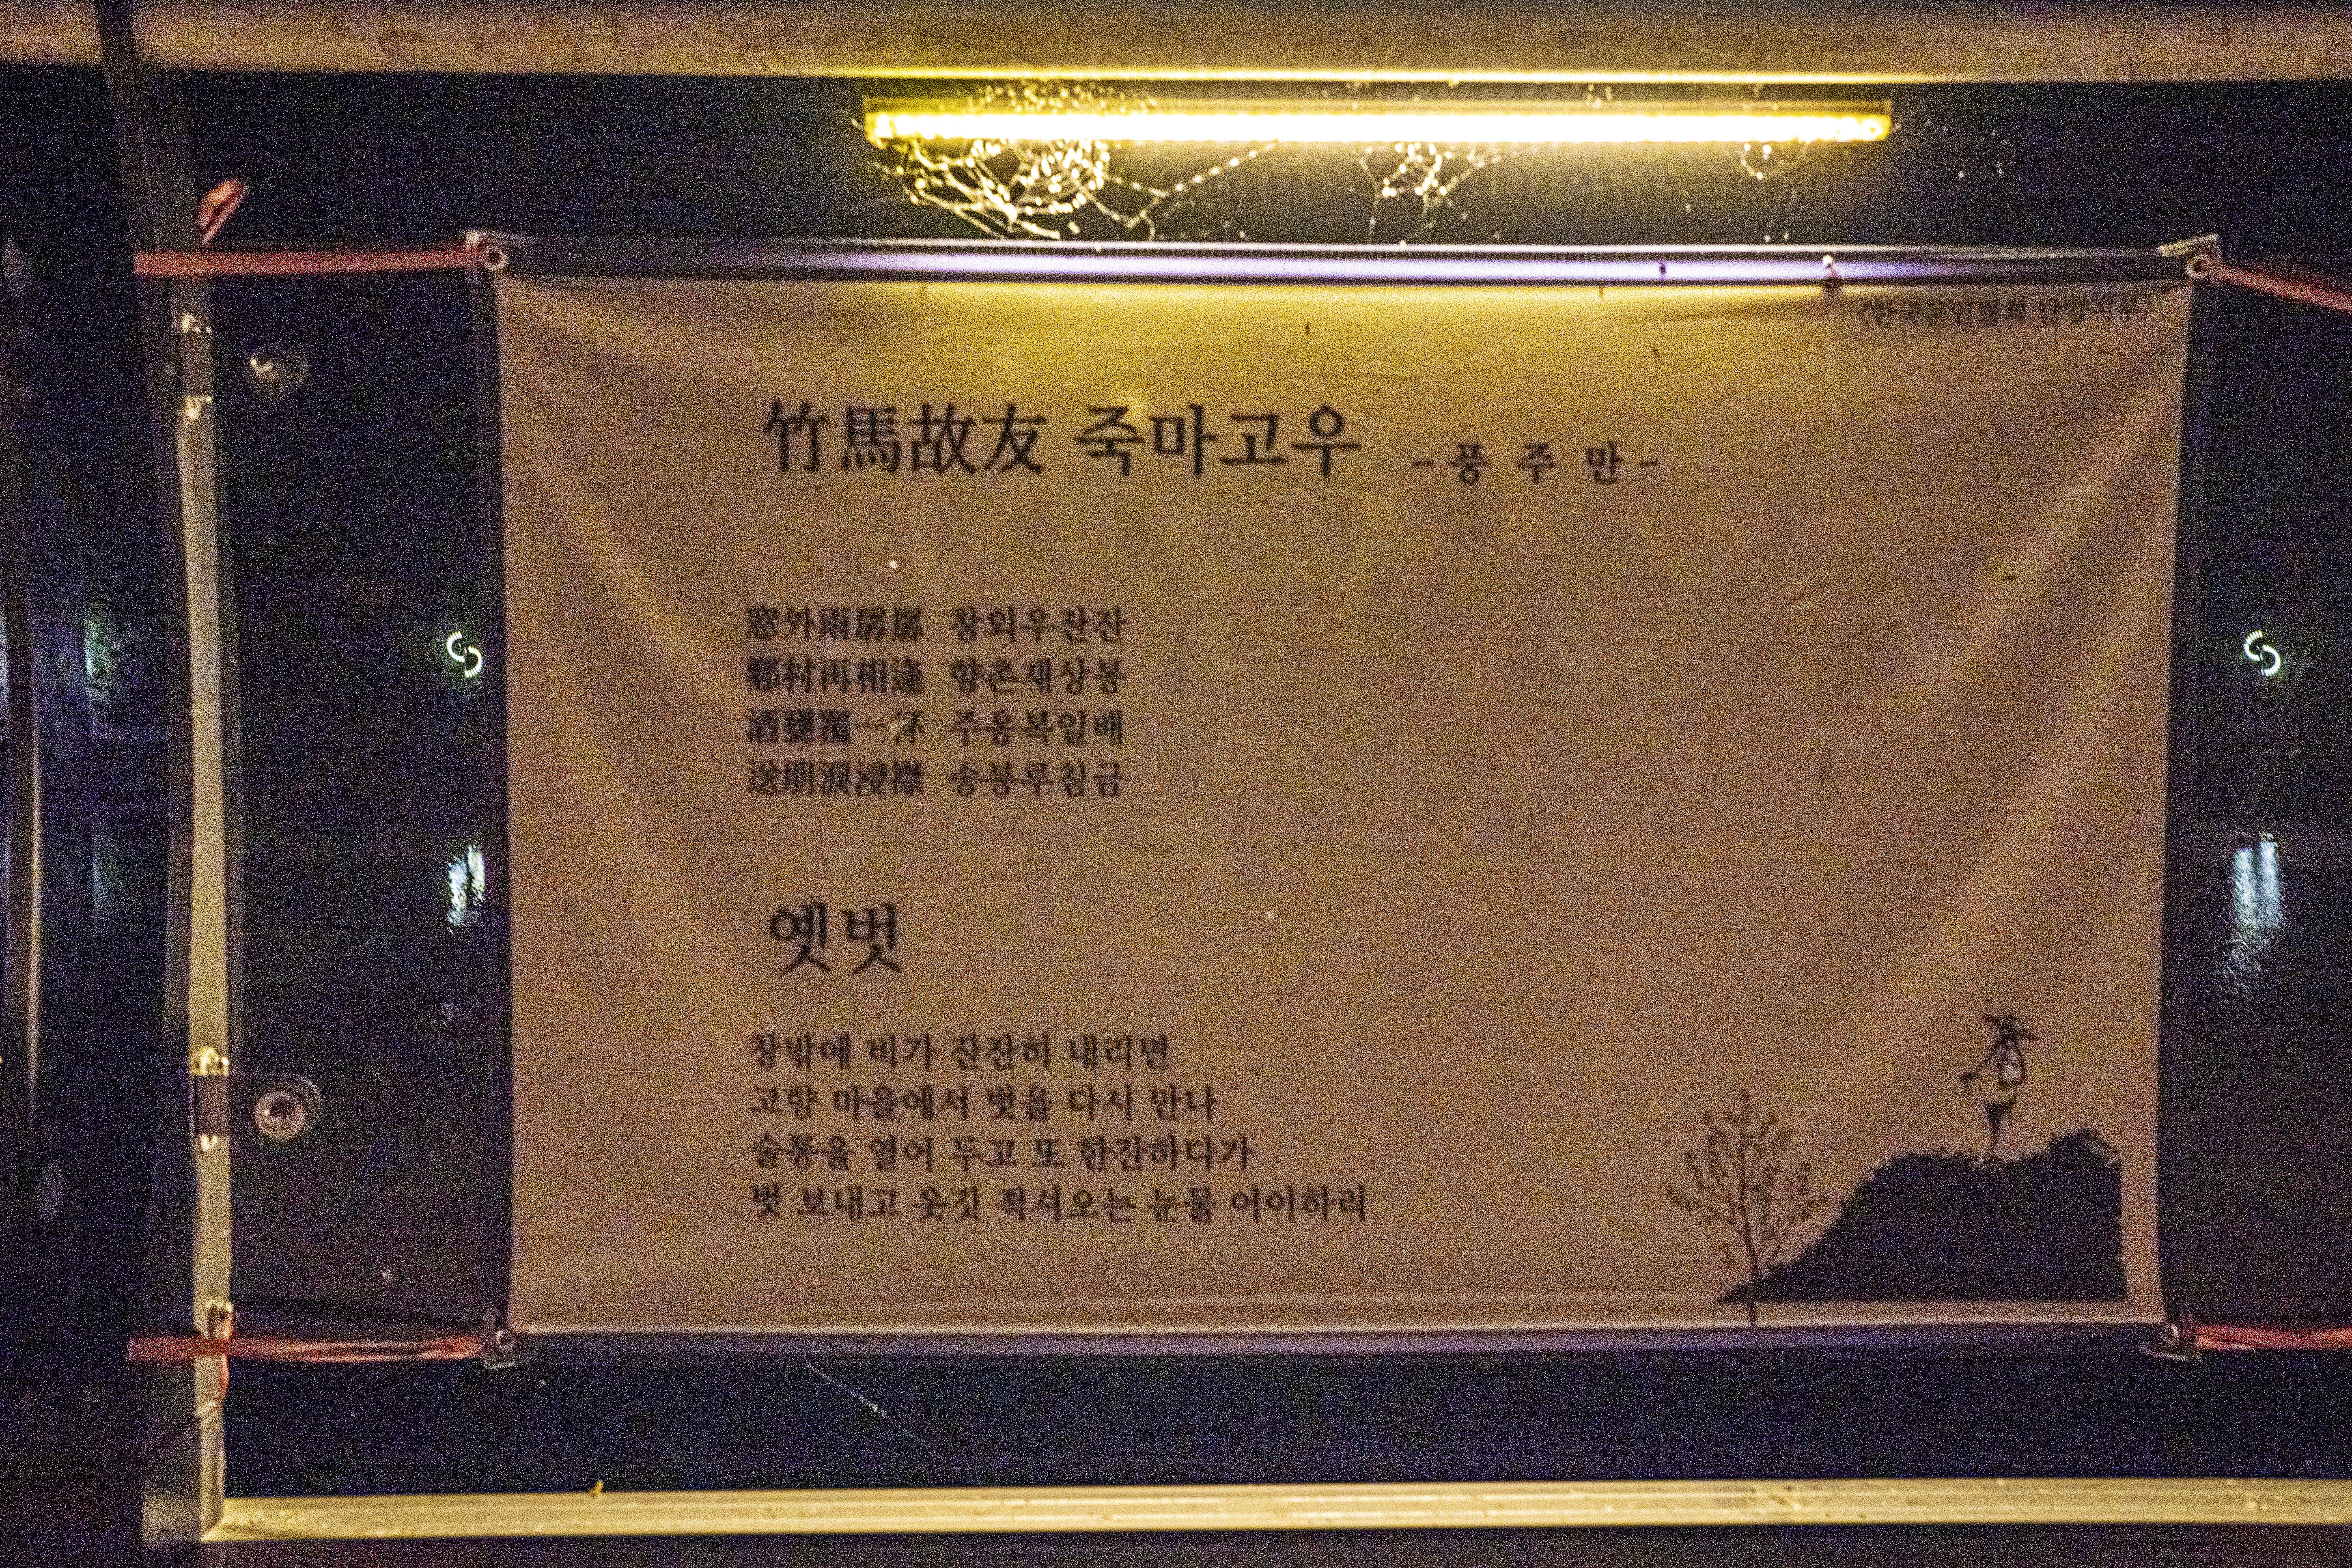 한국문인협회
竹馬故友 죽마고우 -풍 주 만-
窓外雨潺潺 창외우잔잔
鄕村再相逢 향촌재상봉
酒甕覆一杯 주옹복일배
送朋淚浸襟 송붕루침금
옛벗
창밖에 비가 잔잔히 내리면
고향 마을에서 벗을 다시 만나
술통을 열어 두고 또 한잔하다가
벗 보내고 옷깃 적셔오는 눈물 어이하리